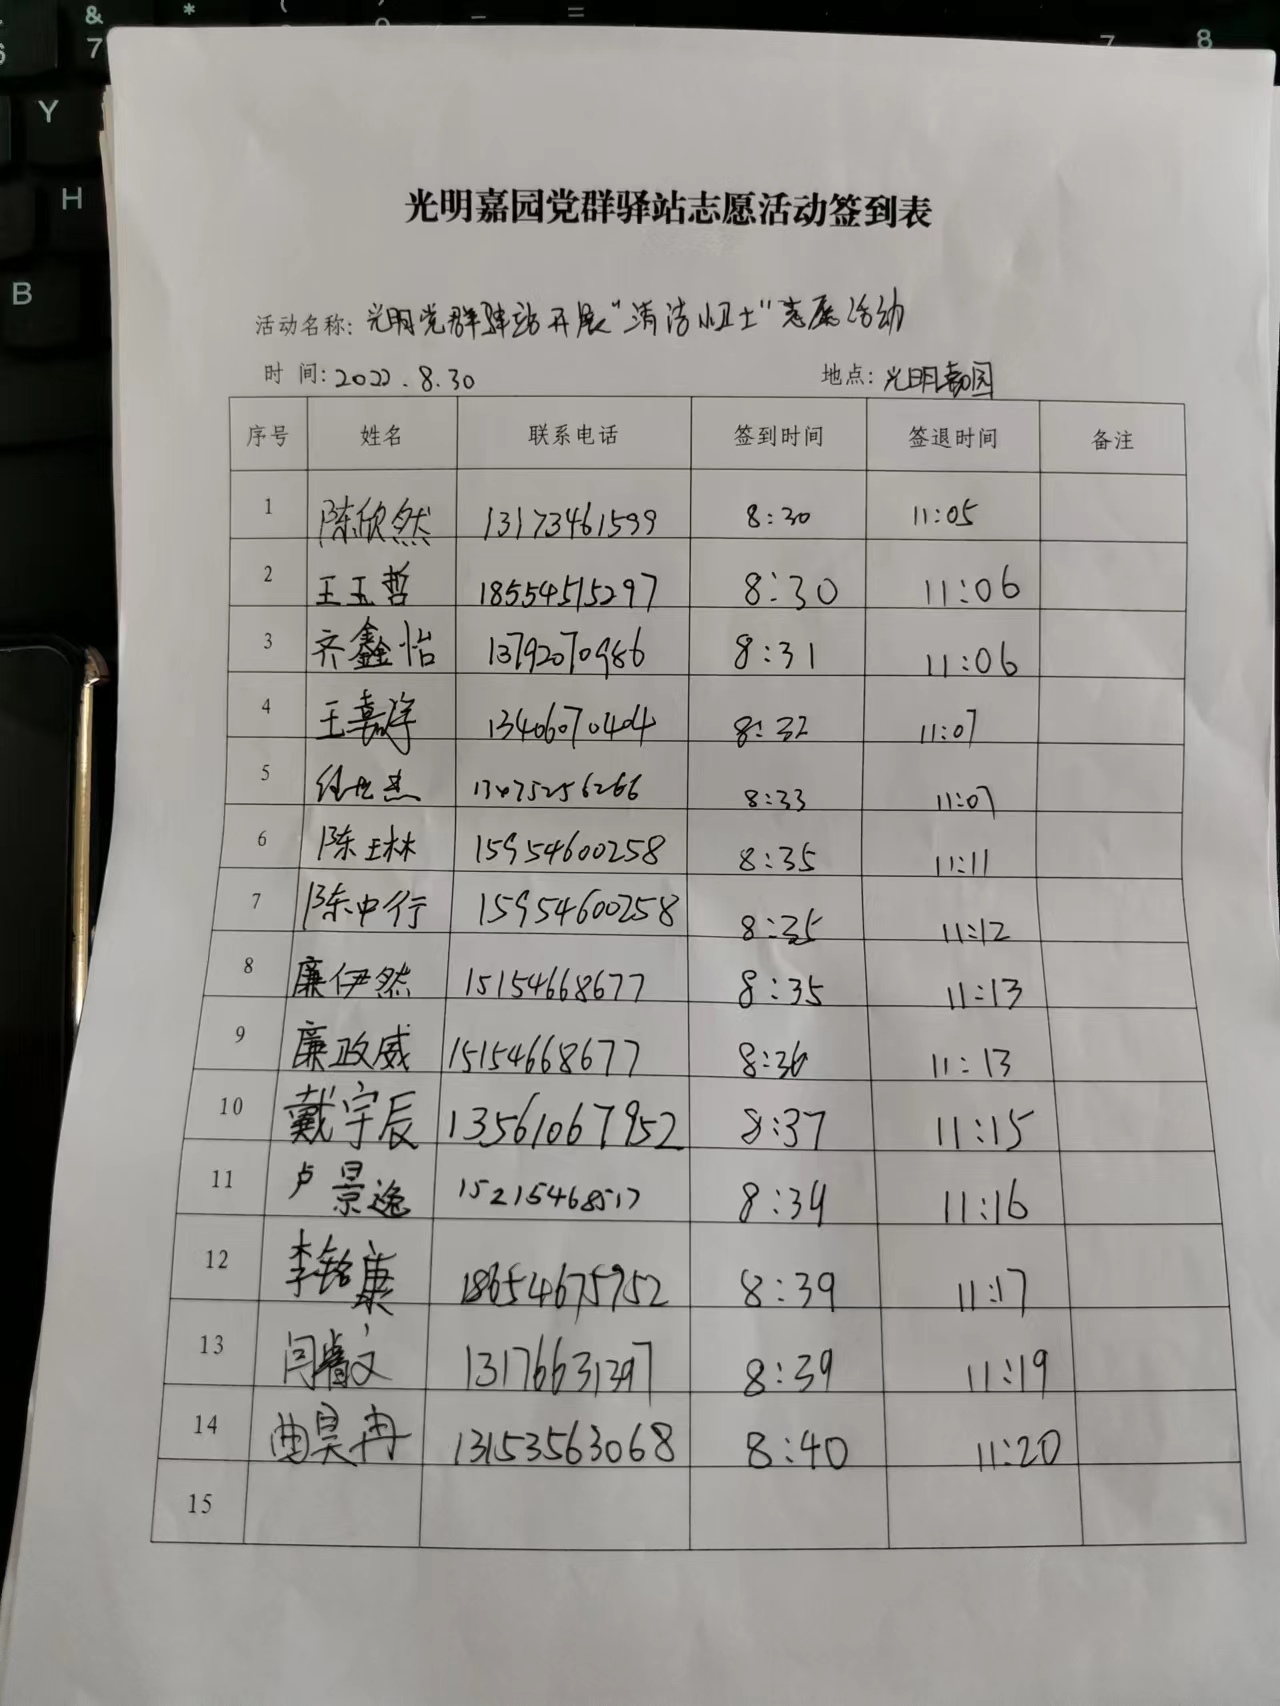 光明嘉园党群驿站志愿活动签到表
活动名称: 光明党群驿站开展"清洁小卫士"志愿活动
时 间: 2022.8.30 地点: 光明嘉园
序号 姓名 联系电话 签到时间 签退时间 备注
1 陈欣然 13173461599 8:30 11:05
2 王玉哲 18554515297 8:30 11:06
3 齐鑫怡 13792070986 8:31 11:06
4 王嘉 13406070404 8:32 11:07
5 8:33 11:07
6 陈玉林 15954600258 8:35 11:11
7 陈中行 15954600258 8:35 11:12
8 廉伊然 15154668677 8:35 11:13
9 廉政威 15154668677 8:36 11:13
10 戴宇辰 13561067952 8:37 11:15
11 卢景逸 15215468517 8:39 11:16
12 李铭康 18654675952 8:39 11:17
13 闫 文 13176631397 8:39 11:19
14 曲昊冉 13153563068 8:40 11:20
15